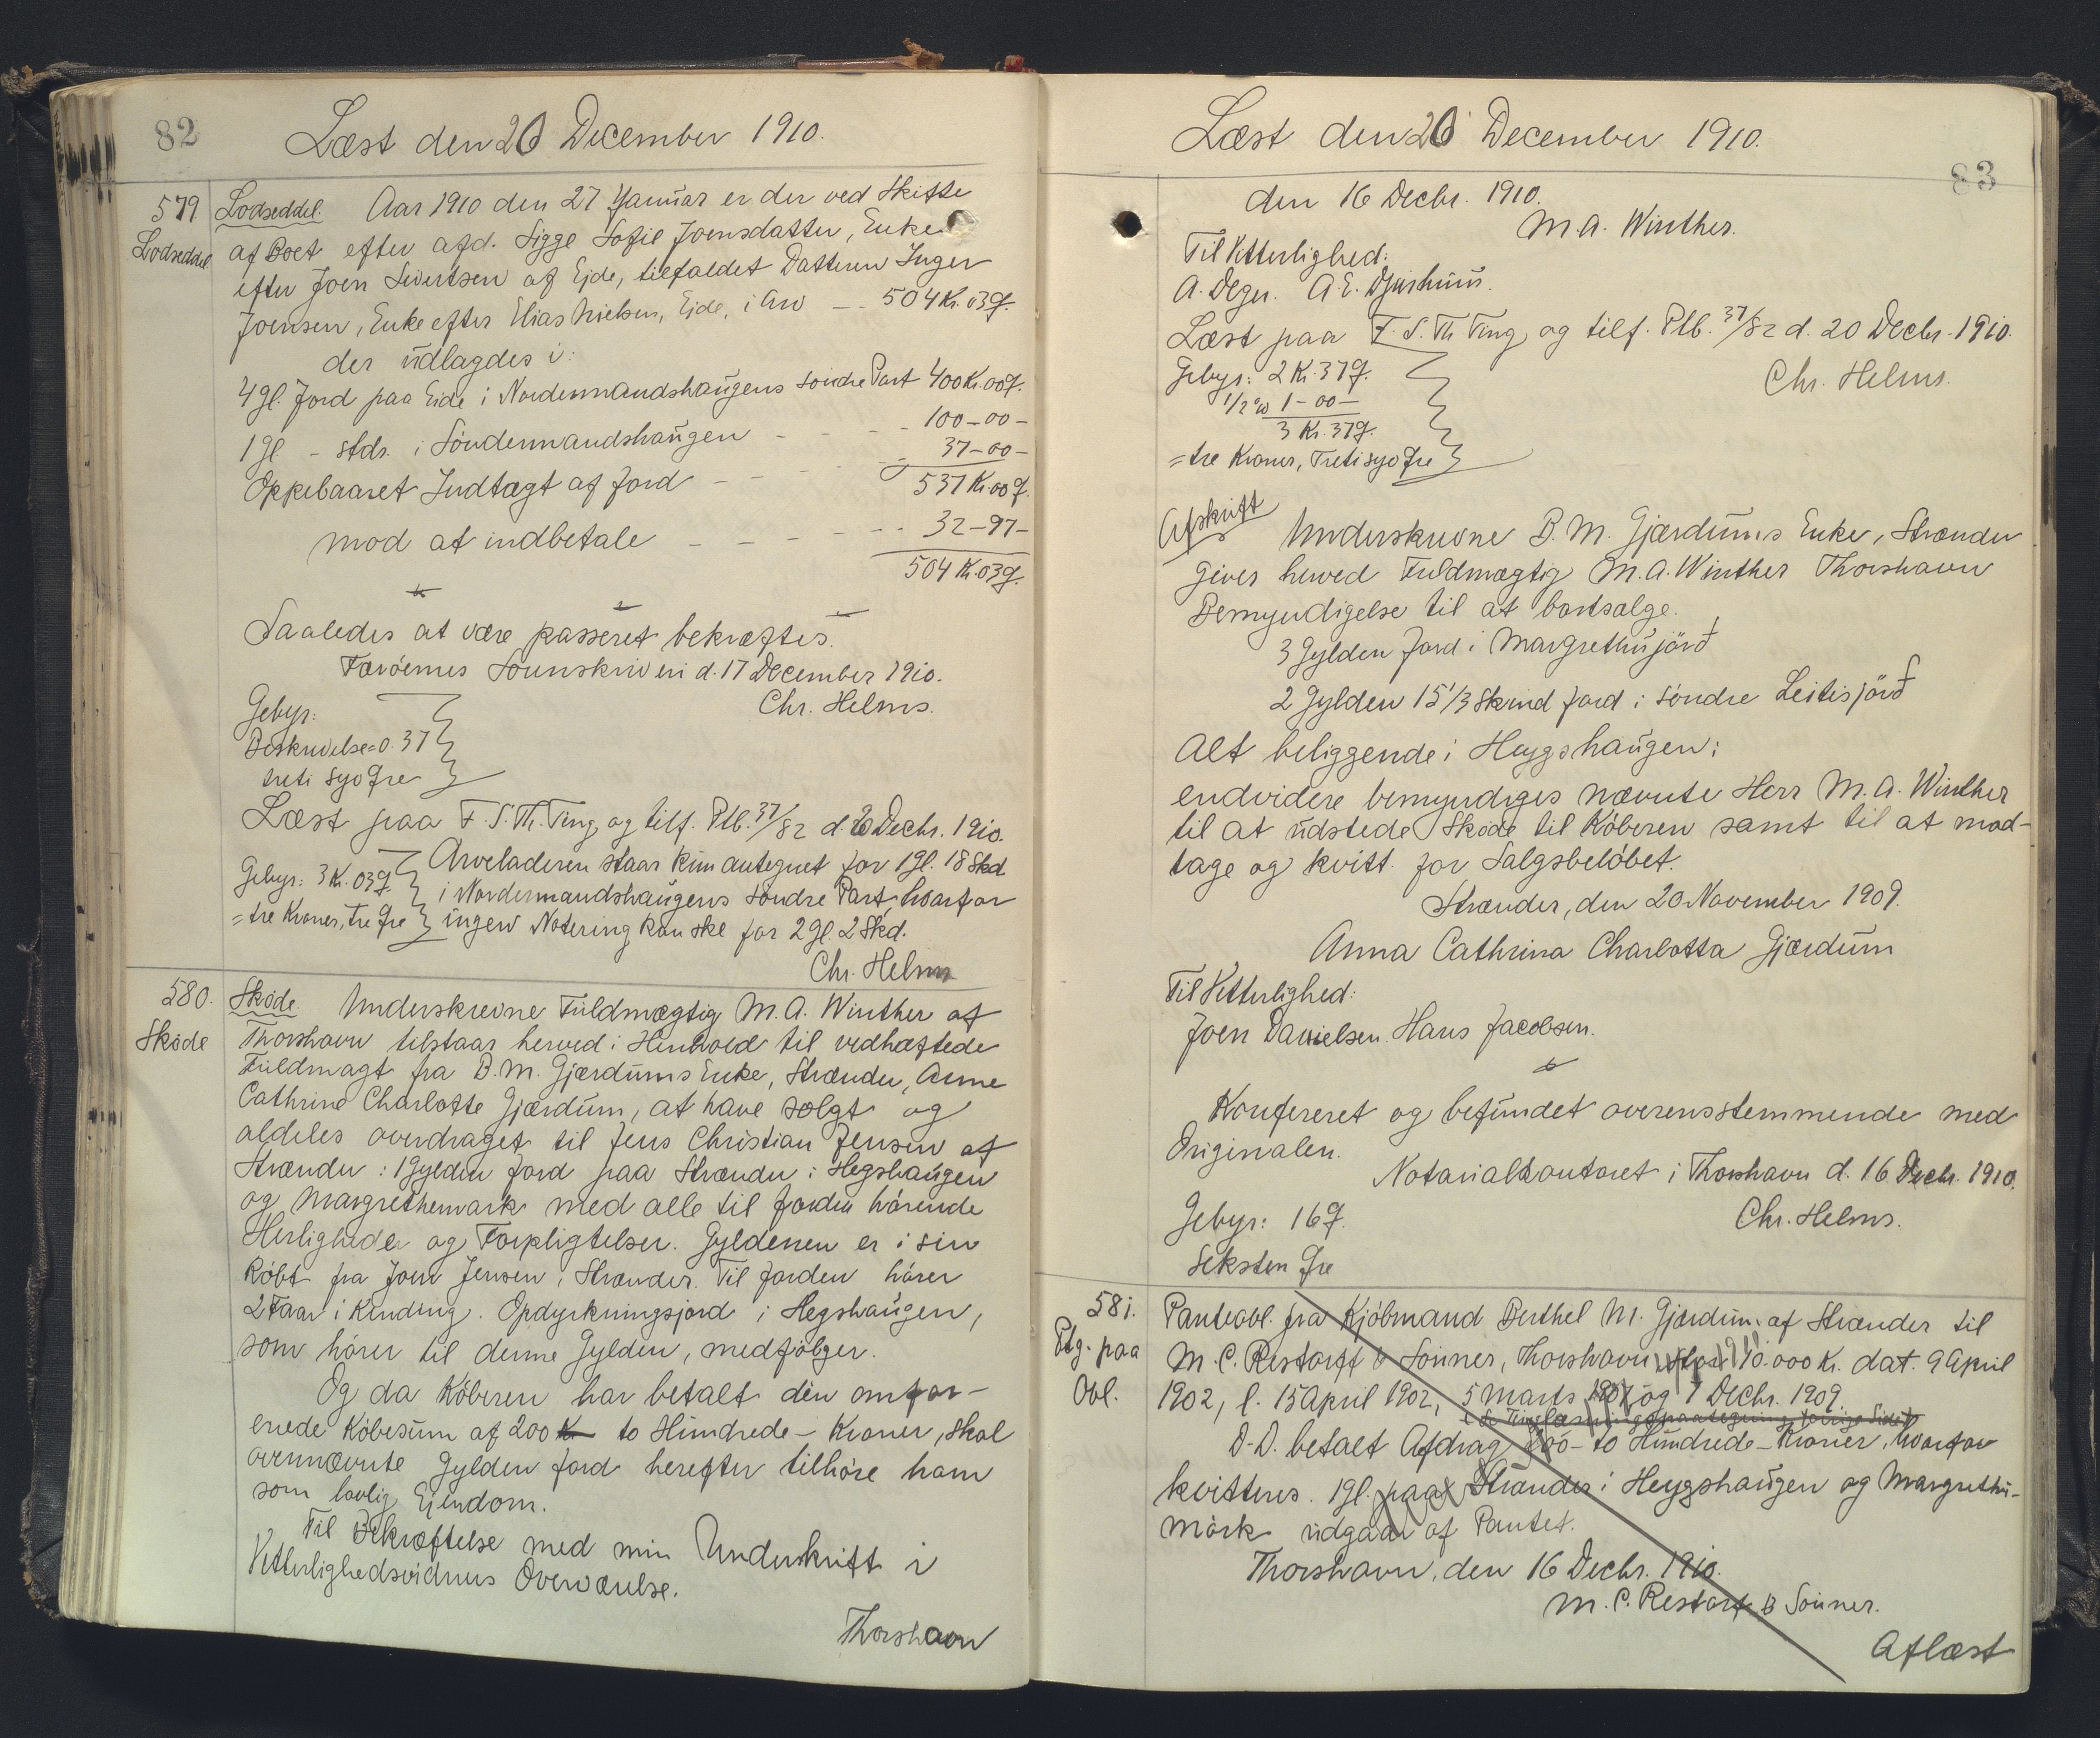 82
Læst den 20 December 1910.
579
Lodseddel
Lodseddel. Aar 1910 den 27 Januar er der ved Skifte
af Boet efter afd. Sigge Sofie Joensdatter, Enke
efter Joen Sivertsen af Ejde, tilfaldet Datteren Inger
Joensen, Enke efter Elias Nielsen, Ejde, i Arv — 504 Kr. 03 Ø.
der udlagdes i:
4 gl. Jord paa Eide i Nordenmandshaugens søndre Part 400 Kr. 00 Ø.
1 gl - stds. i Søndenmandshaugen - - - 100-00-
Oppebaaret Indtægt af Jord - - - 37-00-
537 Kr. 00 Ø.
mod at indbetale - - - - - - 32-97-
504 Kr. 03 Ø.
Saaledes at være passeret bekræftes.
Færøernes Sorenskriveri d. 17 December 1910.
Chr. Helms.
Gebyr:
Beskrivelse = 0.37
treti syv Øre
Læst paa F. S. Th. Ting og tilf. Ptb. 37/82 d. 20 Decbr. 1910.
Arveladeren staar kun antegnet for 1 gl. 18 Skd.
Gebyr: 3 Kr. 03 Ø.
i Nordenmandshaugens søndre Part, hvorfor
= tre Kroner, tre Øre
ingen Notering kan ske for 2 gl. 2 Skd.
Chr. Helms
580.
Skøde
Skøde. Underskrevne Fuldmægtig M. A. Winther af
Thorshavn tilstaar herved i Henhold til vedhæftede
Fuldmagt fra B. M. Gjærdums Enke, Strænder, Anne
Cathrine Charlotte Gjærdum, at have solgt og
aldeles overdraget til Jens Christian Jensen af
Strænder: 1 Gylden Jord paa Strænder i Hegshaugen
og Margrethemark med alle til Jorden hørende
Herligheder og Forpligtelser. Gyldenen er i sin
købt fra Joen Jensen, Strænder. Til Jorden hører
2 Faar i Kending. Opdyrkningsjord i Hegshaugen,
som hører til denne Gylden, medfølger.
Og da Køberen har betalt den omfor-
enede Købesum af 200 K to Hundrede - Kroner, skal
ovennævnte Gylden Jord herefter tilhøre ham
som lovlig Ejendom.
Til Bekræftelse med min Underskrift i
Vitterlighedsvidners Overværelse.
Thorshavn
83
Læst den 20 December 1910.
den 16 Decbr. 1910.
M. A. Winther.
Til Vitterlighed:
A. Deger. A. E. Djurhuus.
Læst paa F. S. Th Ting og tilf. Ptb. 37/82 d. 20 Decbr. 1910.
Gebyr: 2 Kr. 37 Ø.
Chr. Helms.
1/2 % 1-00-
3 Kr. 37 Ø.
= tre Kroner, Treti syv Øre
Afskrift
Underskrevne B. M. Gjærdums Enke, Strænder
giver herved Fuldmægtig M. A. Winther Thorshavn
Bemyndigelse til at bortsælge.
3 Gylden Jord i Margrethujørð
2 Gylden 15 1/3 Skind Jord i søndre Leitisjørð
alt beliggende i Heygshaugen;
endvidere bemyndiges nævnte Herr M. A. Winther
til at udstede Skøde til Køberen samt til at mod-
tage og kvitt. for Salgsbeløbet.
Strænder, den 20 November 1909.
Anna Cathrina Charlotta Gjærdum
Til Vitterlighed:
Joen Danielsen. Hans Jacobsen.
Konfereret og befundet overensstemmende med
Originalen.
Notarialkontoret i Thorshavn d. 16 Decbr. 1910.
Gebyr: 16 Ø.
Chr. Helms.
seksten Øre
581.
Ptg. paa
Obl.
Panteobl. fra Kjøbmand Berthel M. Gjærdum af Strænder til
M. C. Restorff & Sønner, Thorshavn stor 10.000 Kr. dat. 9 April
1902, l. 15 April 1902, 5 Marts 1907 og 7 Decbr. 1909.
D. D. betalt Afdrag 200 - to Hundrede - Kroner, hvorfor
kvitteres. 1 gl. paa Strænder i Heygshaugen og Margrethu-
mørk udgaar af Pantet.
Thorshavn, den 16 Decbr. 1910.
M. C. Restorff & Sønner.
Aflæst